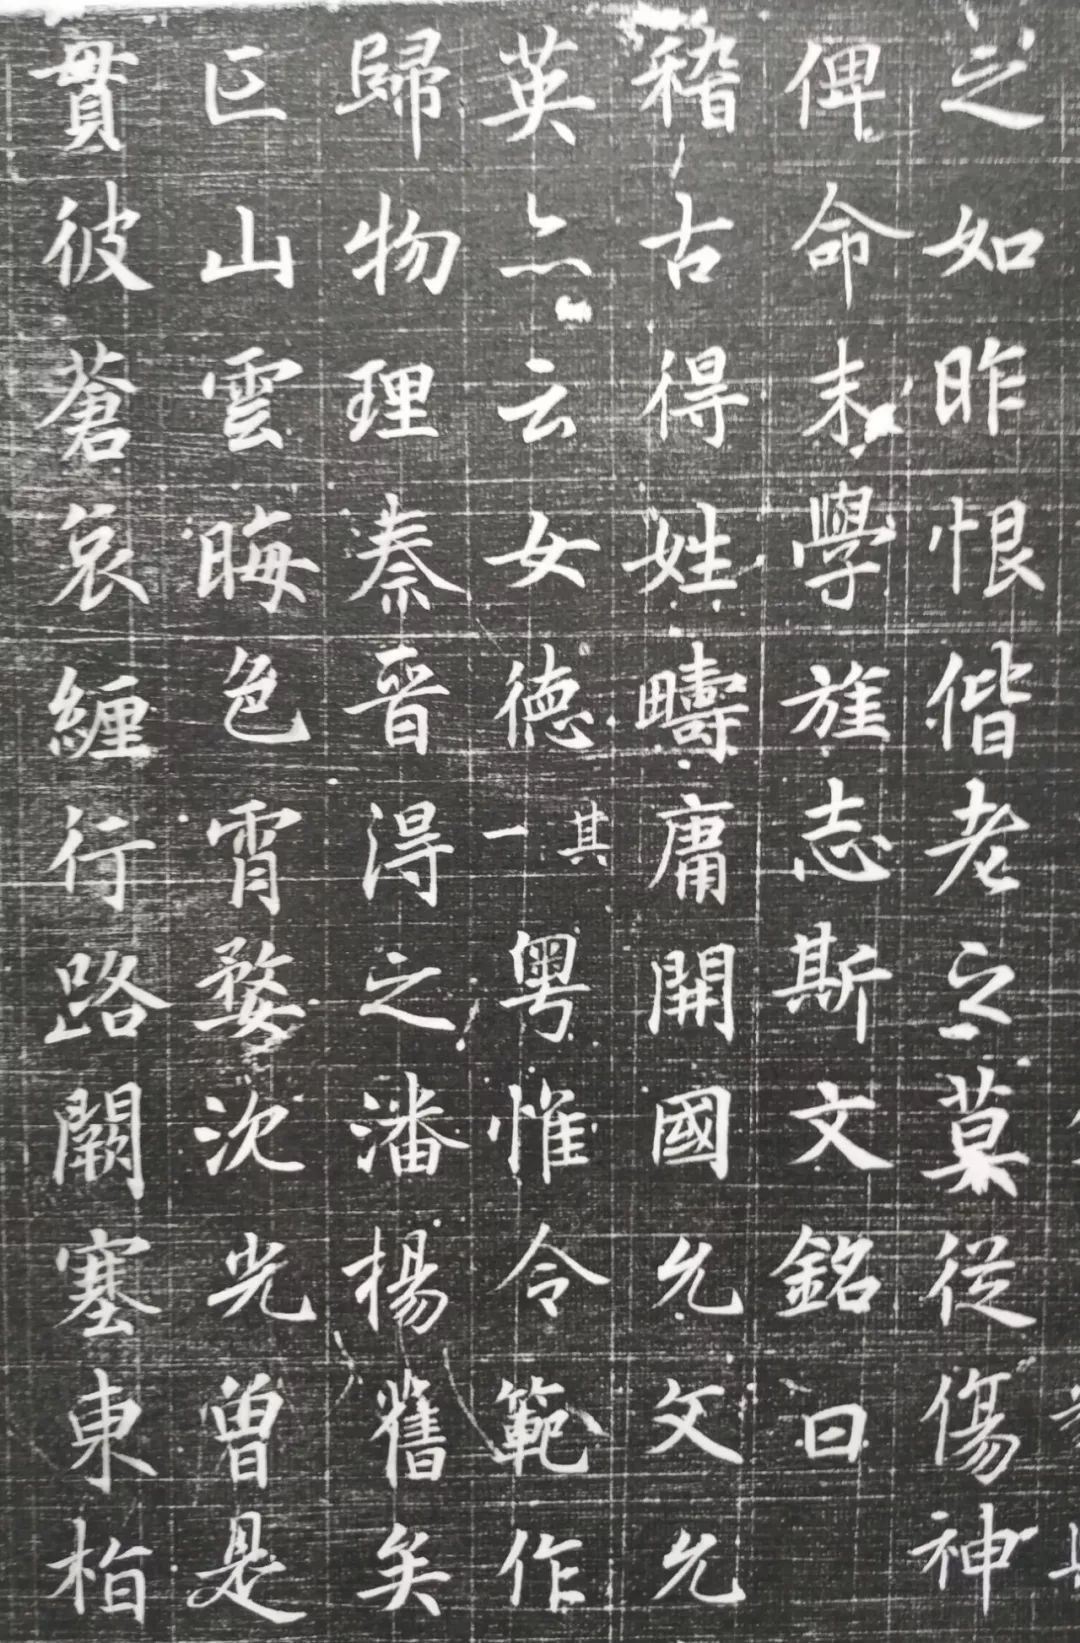 之如昨恨偕老之莫從傷神
俾命末學旌志斯文銘曰
稽古得姓疇庸開國允文允
英亦云女德其一粤惟令範作
歸物理秦晉得之潘楊舊矣
山雲晦色宵婺沈光曽是
貫彼蒼哀纏行路闕塞東栢